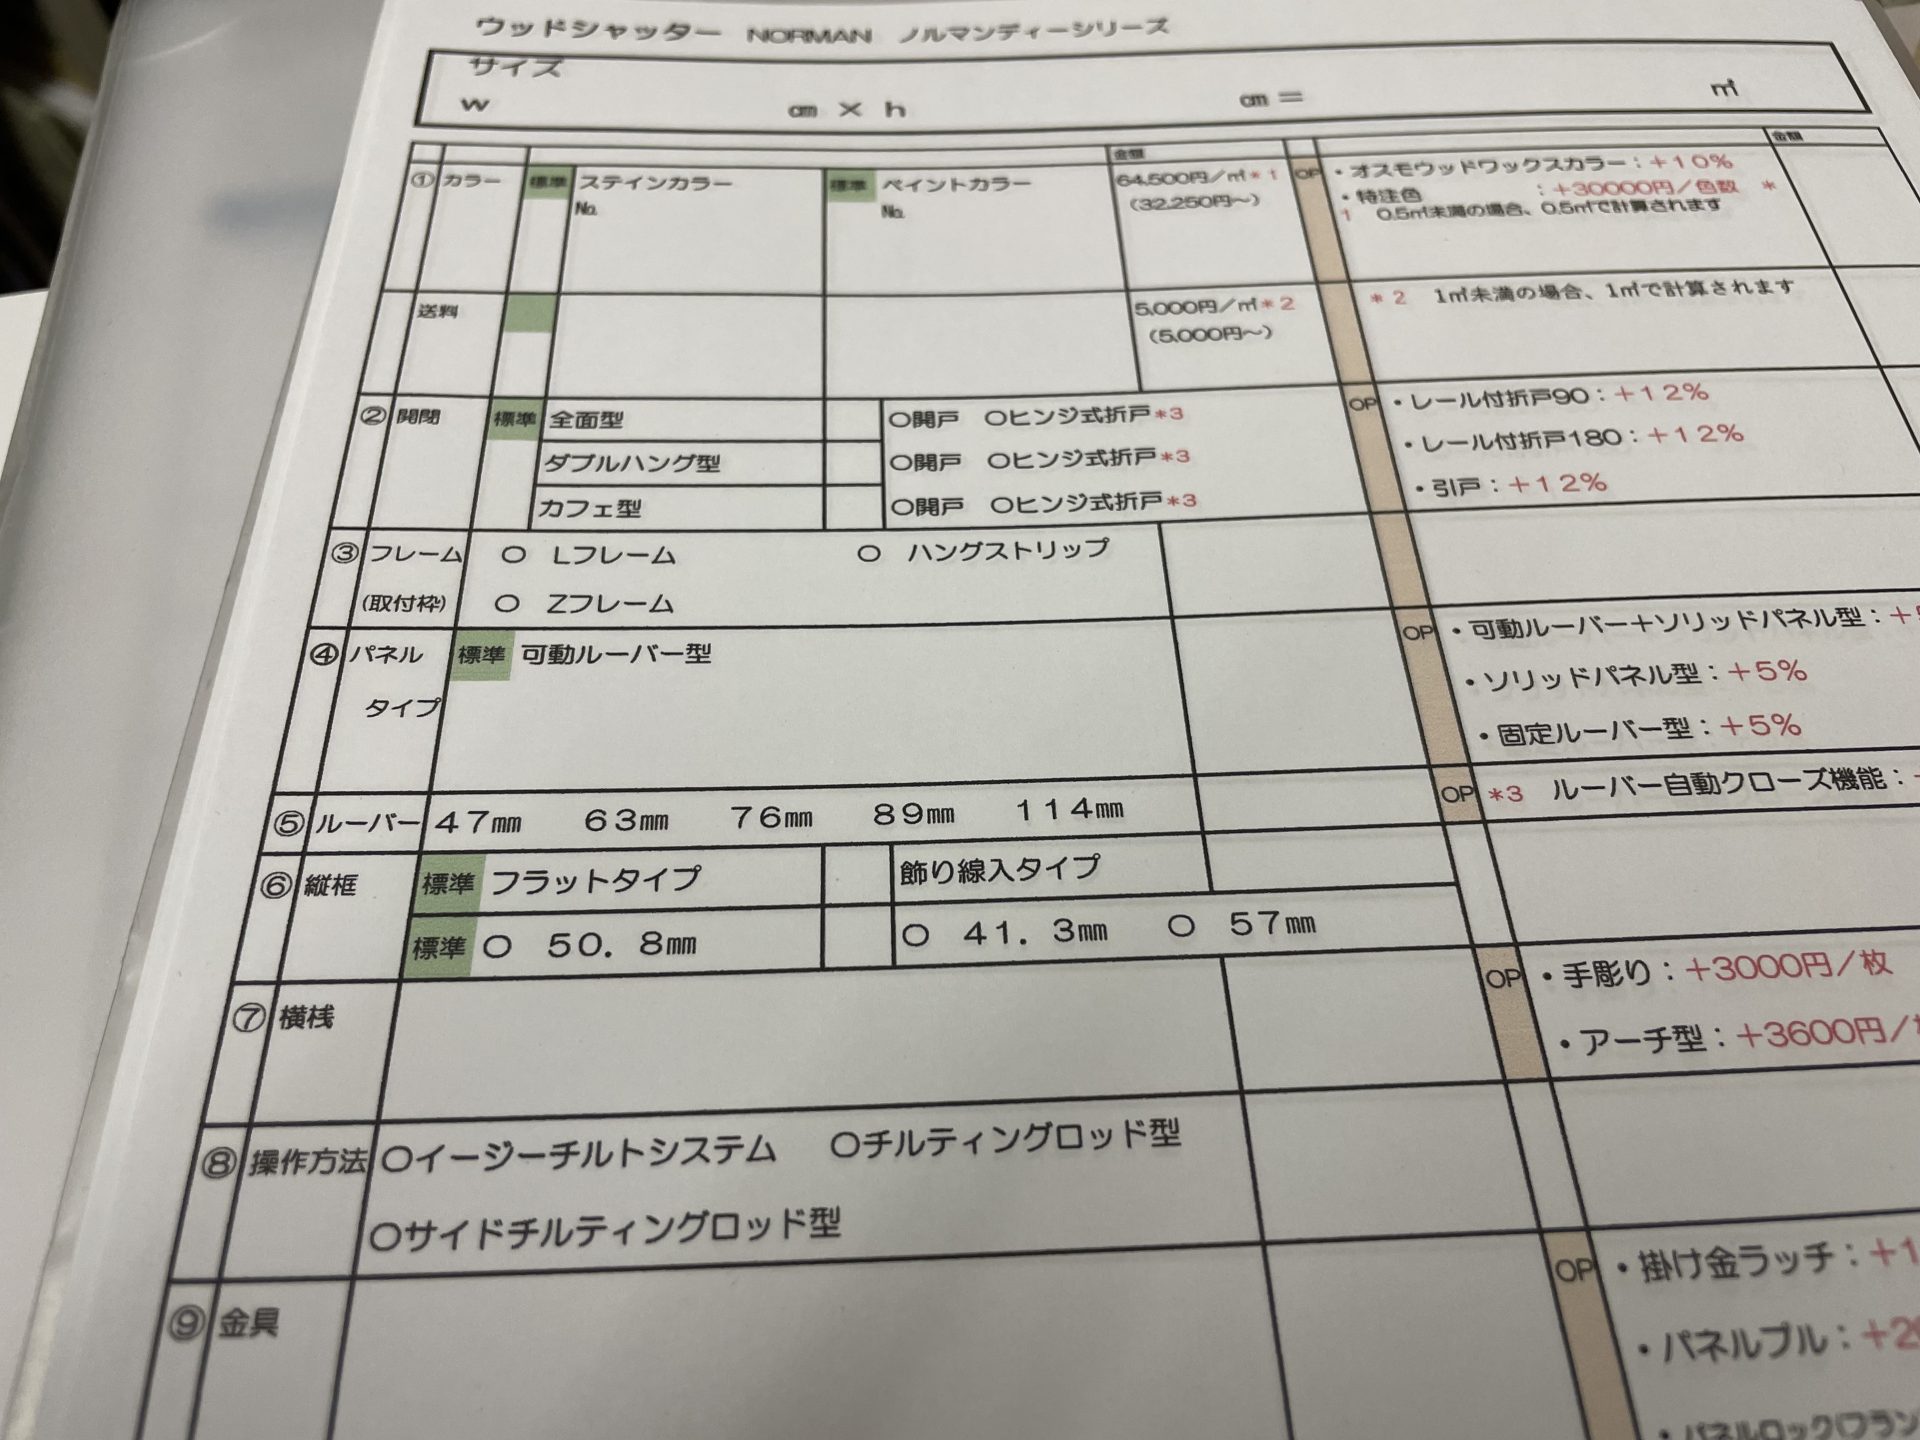 ウッドシャッター NORMAN ノルマンディーシリーズ
サイズ
w cm × h cm = ㎡
金額 金額
① カラー 標準 ステインカラー 標準 ペイントカラー 64,500円/㎡*1 OP ・オスモウッドワックスカラー:+10%
№ № (32,250円～) ・特注色 :+30000円/色数 *
1 0.5㎡未満の場合、0.5㎡で計算されます
送料 5,000円/㎡*2 *2 1㎡未満の場合、1㎡で計算されます
(5,000円～)
② 開閉 標準 全面型 ○開戸 ○ヒンジ式折戸*3 OP ・レール付折戸90:+12%
ダブルハング型 ○開戸 ○ヒンジ式折戸*3 ・レール付折戸180:+12%
カフェ型 ○開戸 ○ヒンジ式折戸*3 ・引戸:+12%
③ フレーム ○ Lフレーム ○ ハングストリップ
(取付枠) ○ Zフレーム
④ パネル 標準 可動ルーバー型 OP ・可動ルーバー+ソリッドパネル型:+
タイプ ・ソリッドパネル型:+5%
・固定ルーバー型:+5%
⑤ ルーバー 47㎜ 63㎜ 76㎜ 89㎜ 114㎜ OP *3 ルーバー自動クローズ機能:
⑥ 縦框 標準 フラットタイプ 飾り線入タイプ
標準 ○ 50.8㎜ ○ 41.3㎜ ○ 57㎜
⑦ 横桟 OP ・手彫り:+3000円/枚
・アーチ型:+3600円/
⑧ 操作方法 ○イージーチルトシステム ○チルティングロッド型
○サイドチルティングロッド型
⑨ 金具 OP ・掛け金ラッチ:+1
・パネルプル:+2
・パネルロック(フラン